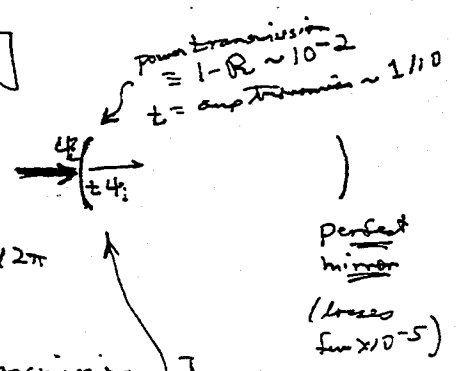 power transmission
≡ 1-R ~ 10⁻²
t = amp transmission ~ 1/10
Ψi
tΨi
2π
perfect
mirror
(losses
few x10⁻⁵)